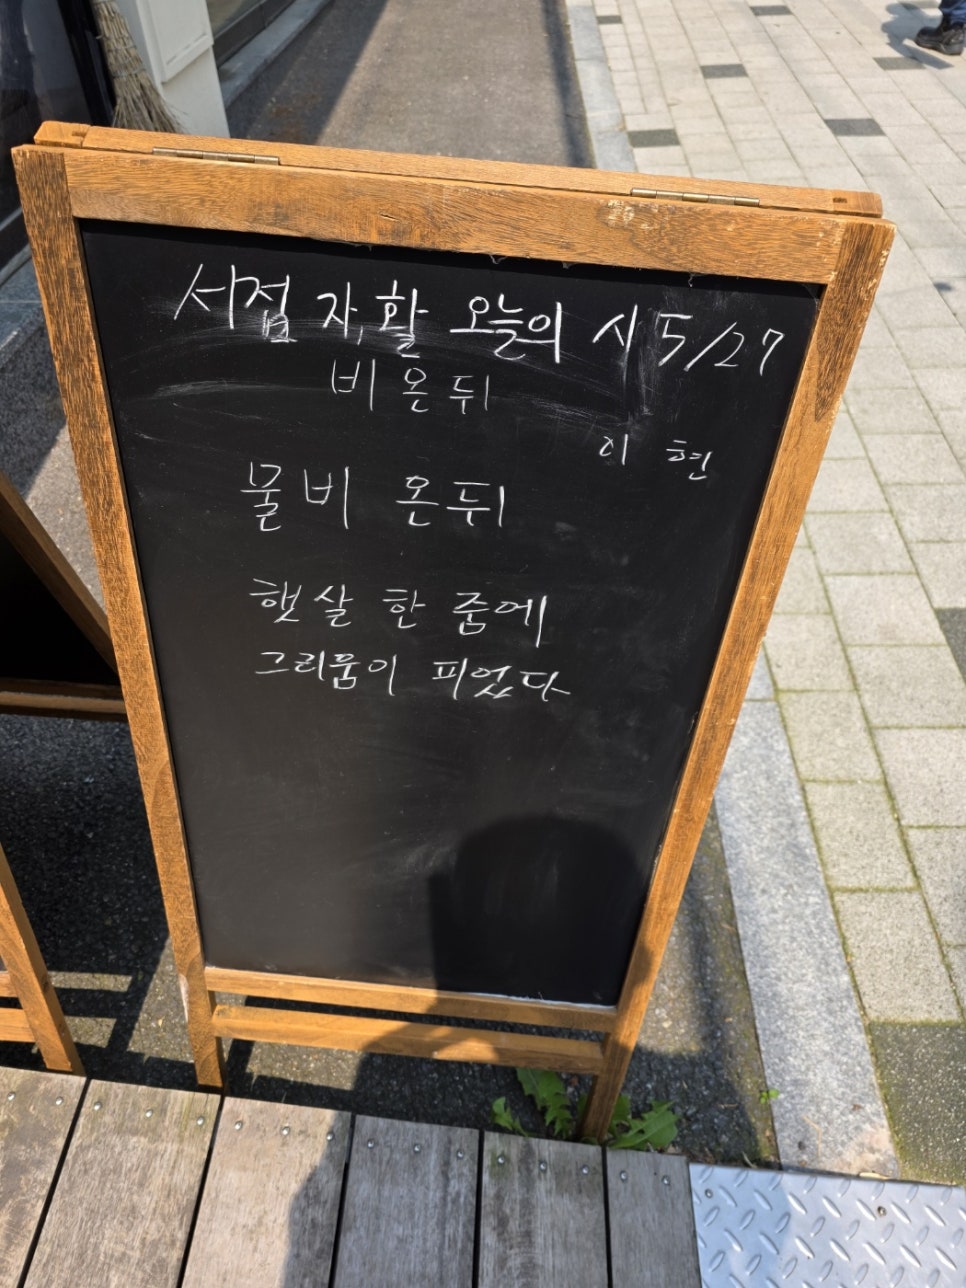 서점 자,활 오늘의 시 5/27
비 온 뒤
이 현
물비 온 뒤
햇살 한 줌에
그리움이 피었다